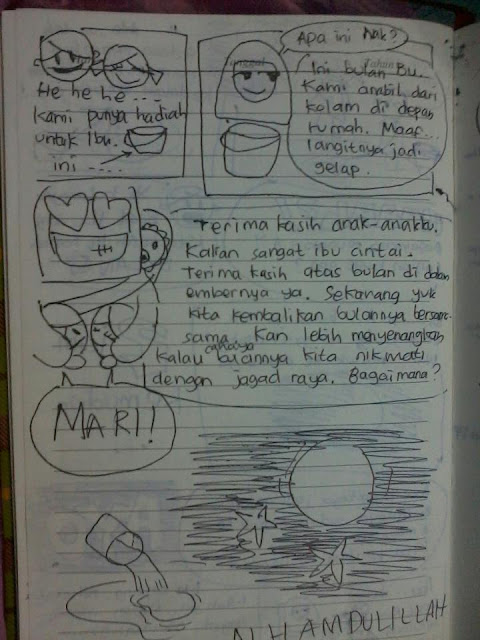 He he he ....
kami punya hadiah
untuk Ibu.
ini ....
Apa ini Nak?
Ini bulan Bu.
Kami ambil dari
kolam di depan
rumah. Maaf...
langitnya jadi
gelap.
Terima kasih anak-anakku.
Kalian sangat ibu cintai.
Terima kasih atas bulan di dalam
embernya ya. Sekarang yuk
kita kembalikan bulannya bersama-
sama. Kan lebih menyenangkan
kalau cahaya bulannya kita nikmati
dengan jagad raya. Bagaimana?
MARI!
ALHAMDULILLAH